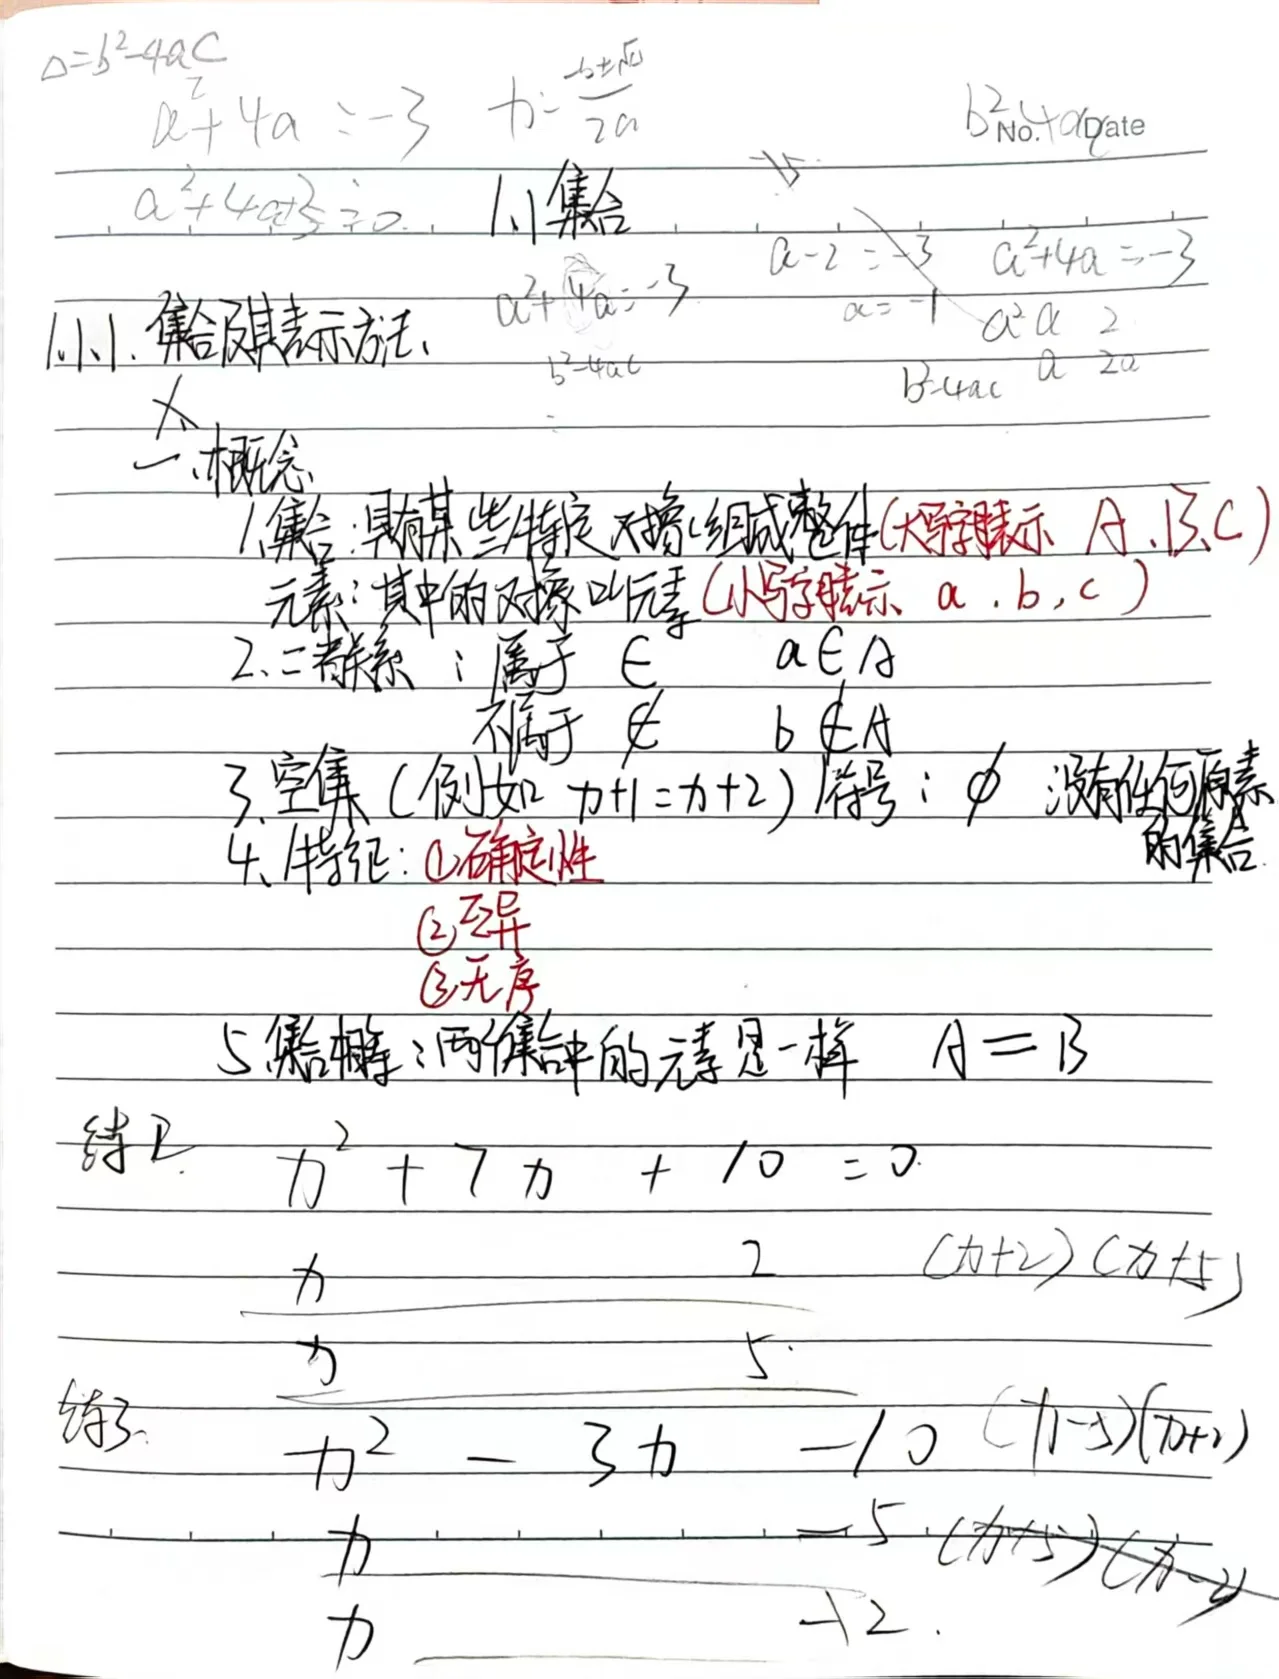 △=b²-4ac
a²+4a=-3
x=-b±√
2a
b²-4ac
No.
Date
a²+4a+3=0
1.1集合
a-2=-3
a²+4a=-3
a²+4a=-3
a=-1
a² a 2
1.1.1.集合及其表示方法、
b²-4ac
b²-4ac
a 2a
一、概念
1.集合:具有某些特定对像组成整体(大写字母表示 A、B、C)
元素:其中的对像叫元素(小写字母表示 a.b,c)
2、二者关系:属于 ∈ a∈A
不属于 ∉ b∉A
3、空集(例如 x+1=x+2)符号:∅ 没有任何原素
的集合
4、特征:①确定性
②互异
③无序
5集合相等:两个集合中的元素是一样 A=B
练2
x²+7x+10=0
x 2 (x+2)(x+5)
x 5
练3.
x²-3x-10 (x-5)(x+2)
x -5 (x+5)(x-2)
x +2.